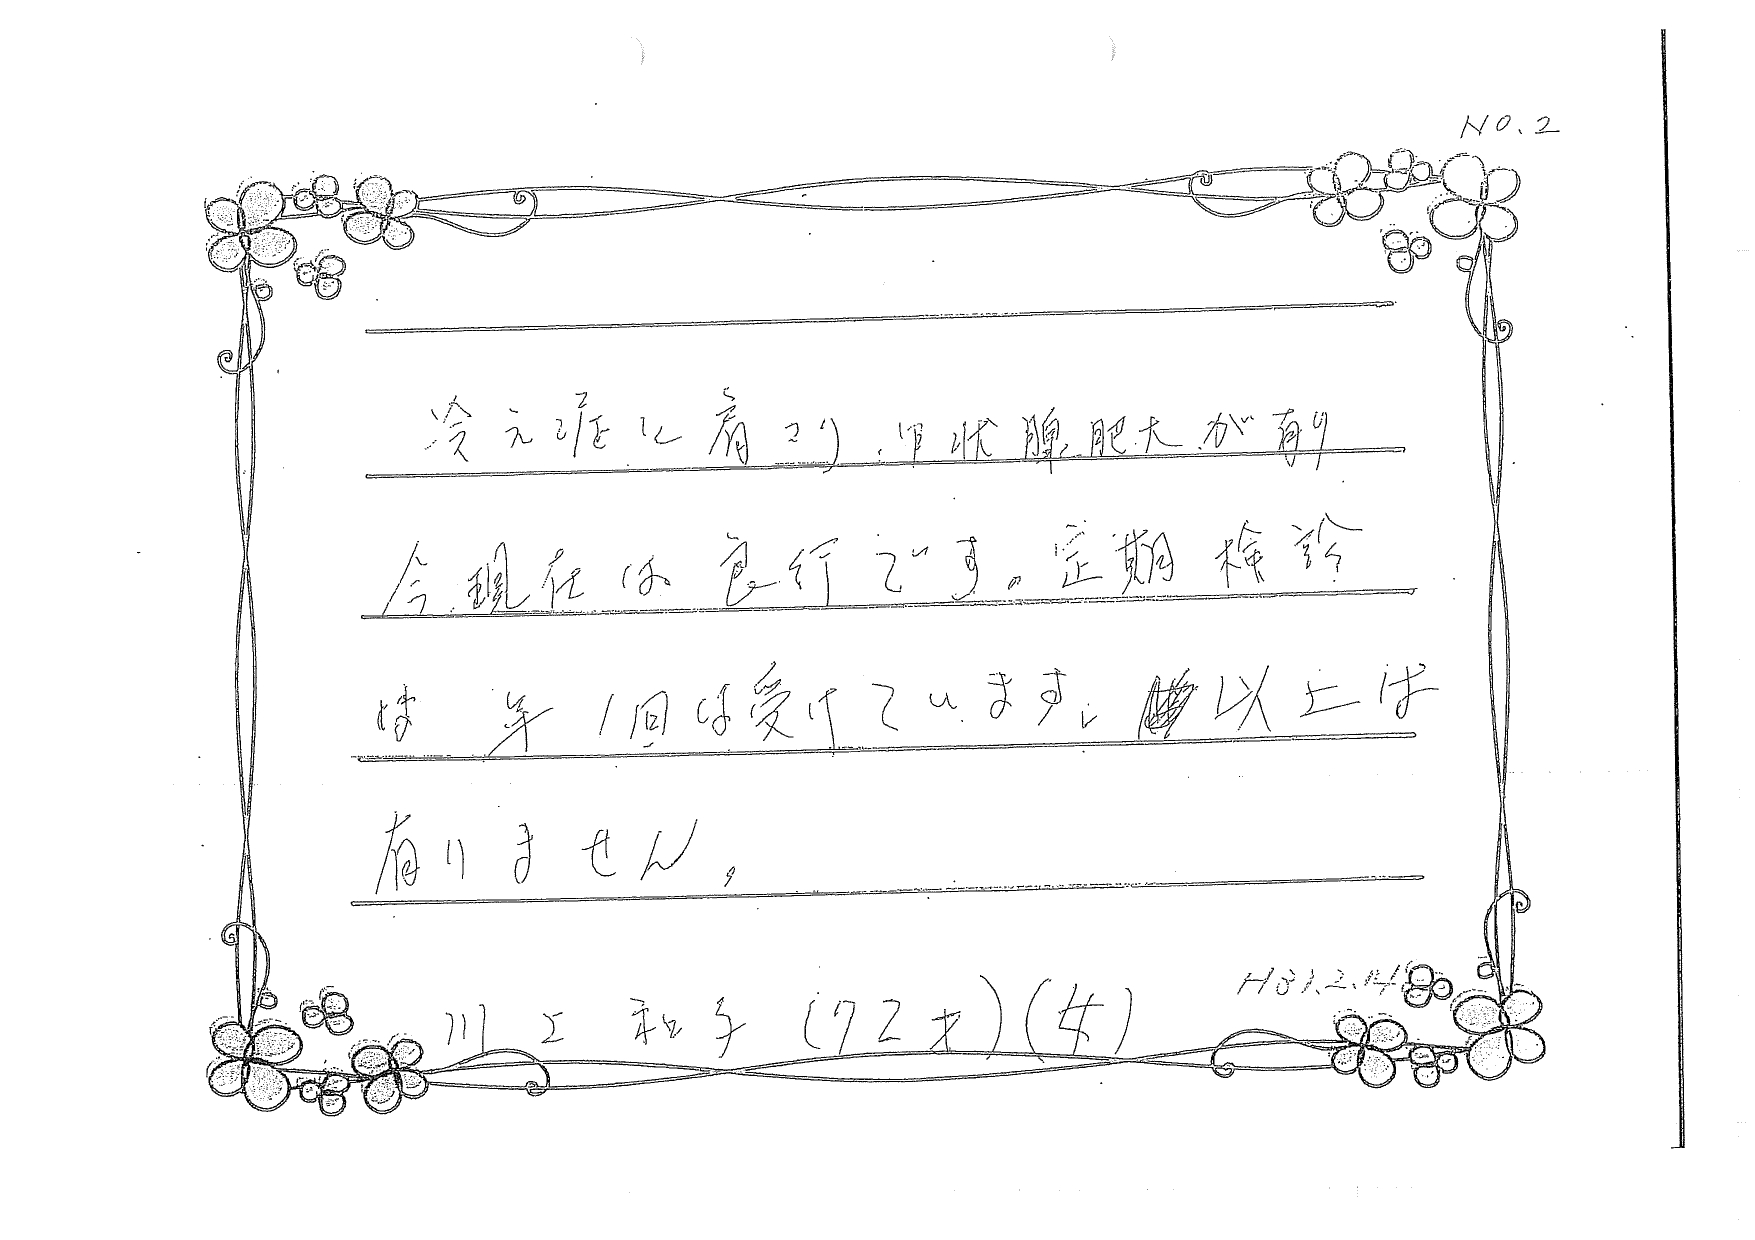 NO.2
冷え症に肩こり、甲状腺肥大が有り
今現在は良行です。定期検診
は 年1回は受けています。以上は
有りません。
H31.2.14
川上和子(72才)(女)